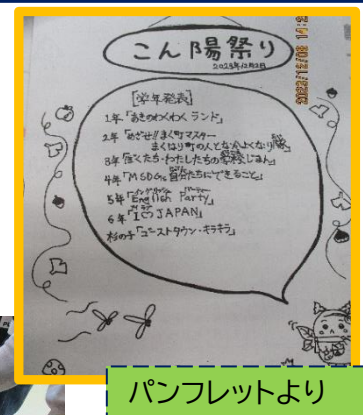 こん陽祭り
[学年発表]
1年「あきのわくわくランド」
2年「めざせ!!まく町マスター
まくはり町の人となかよくなり隊」
3年「ぼくたち・わたしたちのじまん」
4年「MSDGs 自分たちにできること」
5年「English Party」
6年「I♡JAPAN」
杉の子「ゴーストタウン・キラキラ」
パンフレットより